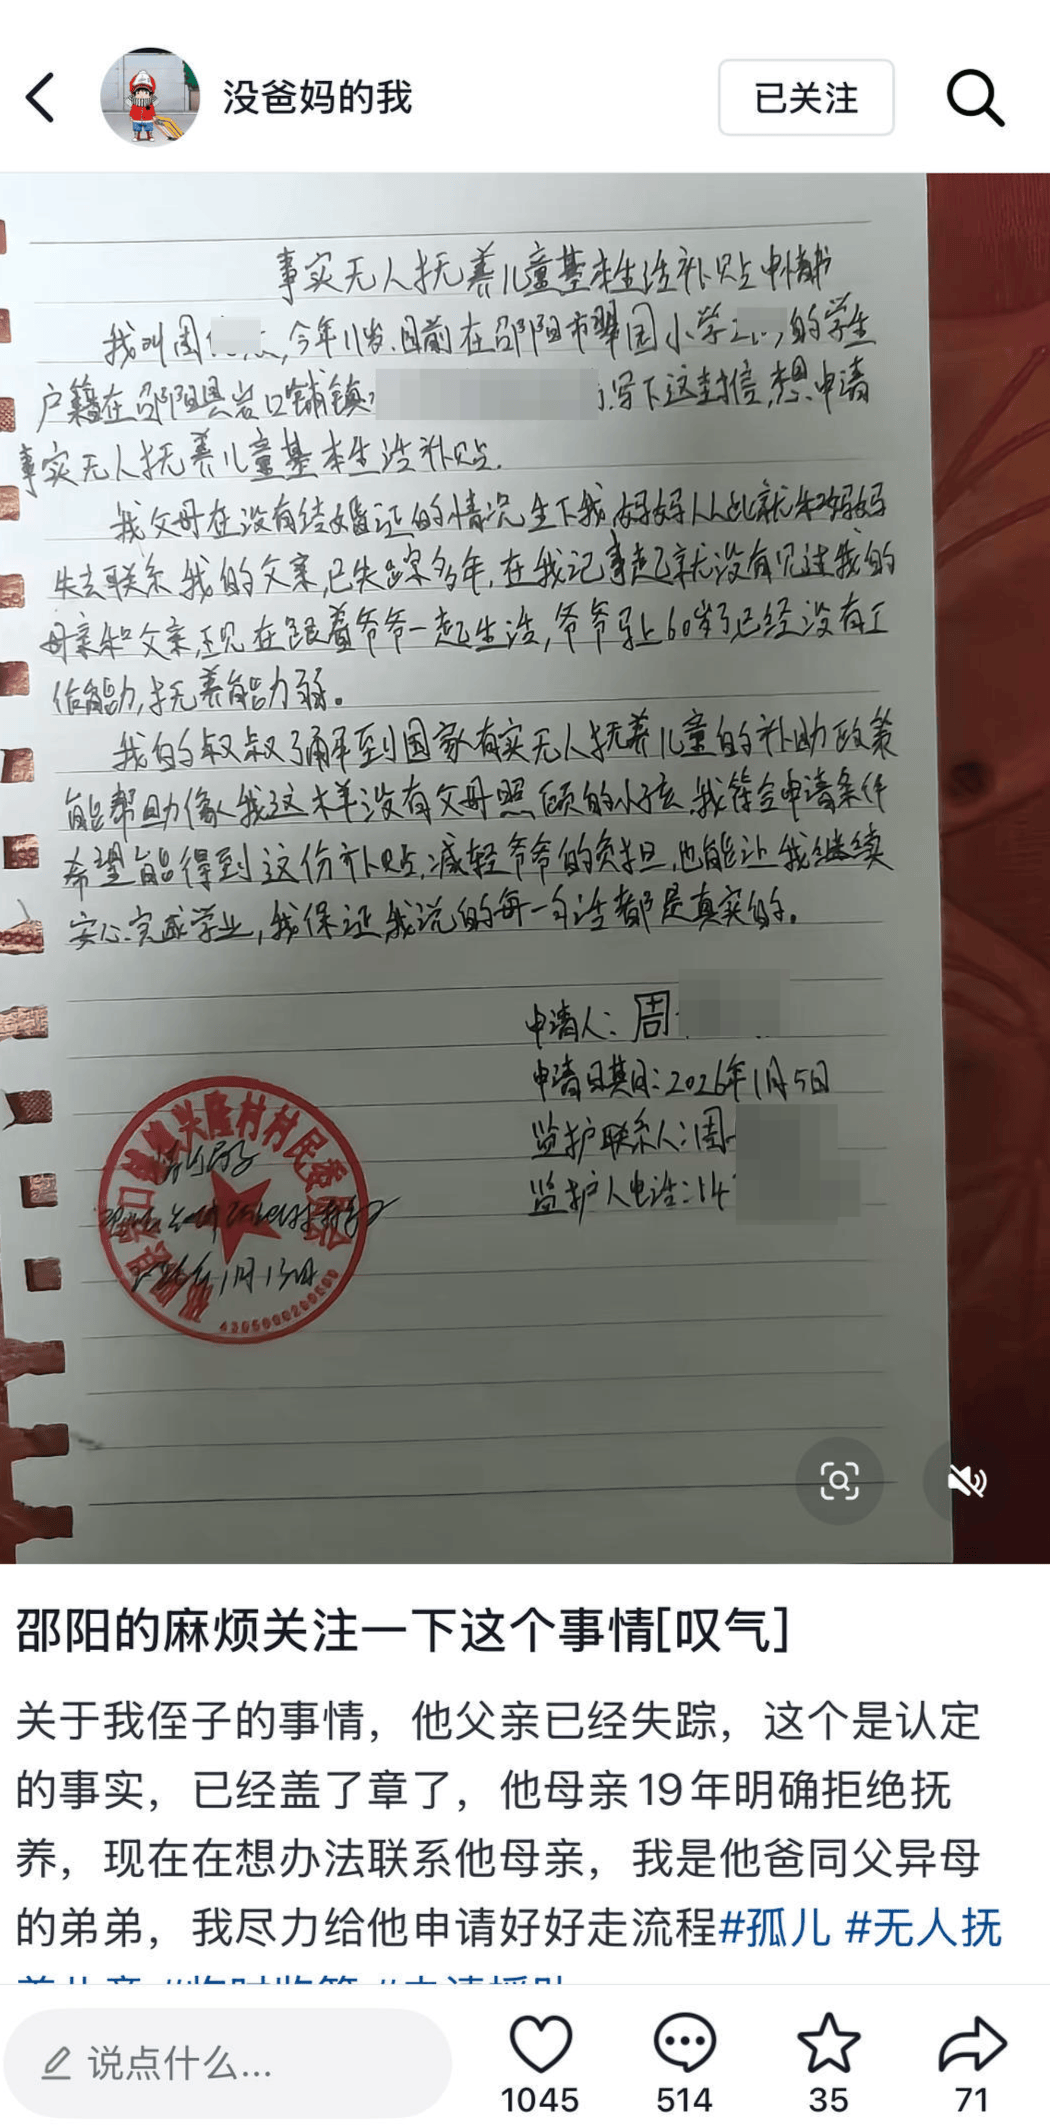 没爸妈的我
已关注
事实无人抚养儿童基本生活补贴申请书
我叫周 今年11岁.目前在邵阳市翠园小学 的学生
户籍在邵阳县岩口铺镇 写下这封信,想申请
事实无人抚养儿童基本生活补贴.
我父母在没有结婚证的情况生下我 妈妈从此就和妈妈
失去联系 我的父亲已失踪多年,在我记事起就没有见过我的
母亲和父亲,现在跟着爷爷一起生活,爷爷马上60岁了已经没有工
作能力,抚养能力弱。
我的叔叔了解到国家有实无人抚养儿童的补助政策
能帮助像我这样没有父母照顾的小孩 我符合申请条件
希望能得到这份补贴,减轻爷爷的负担,也能让我继续
安心完成学业,我保证我说的每一句话都是真实的。
申请人:周
申请日期日:2026年1月5日
监护联系人:周
监护人电话:14
岩口铺镇兴隆村村民委员会
情况属实
年1月13日
邵阳的麻烦关注一下这个事情[叹气]
关于我侄子的事情，他父亲已经失踪，这个是认定
的事实，已经盖了章了，他母亲19年明确拒绝抚
养，现在在想办法联系他母亲，我是他爸同父异母
的弟弟，我尽力给他申请好好走流程#孤儿 #无人抚
说点什么...
1045
514
35
71